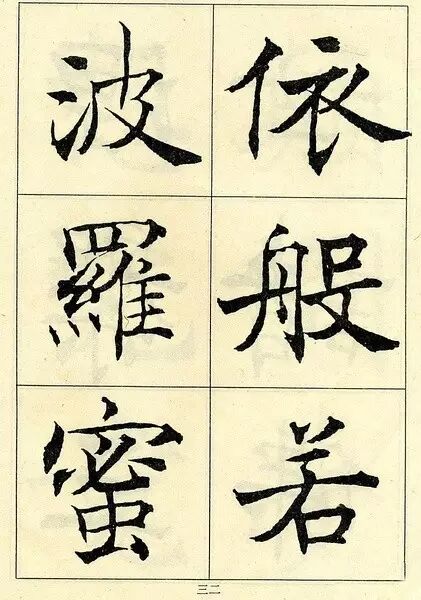 依般若
波羅蜜
三二